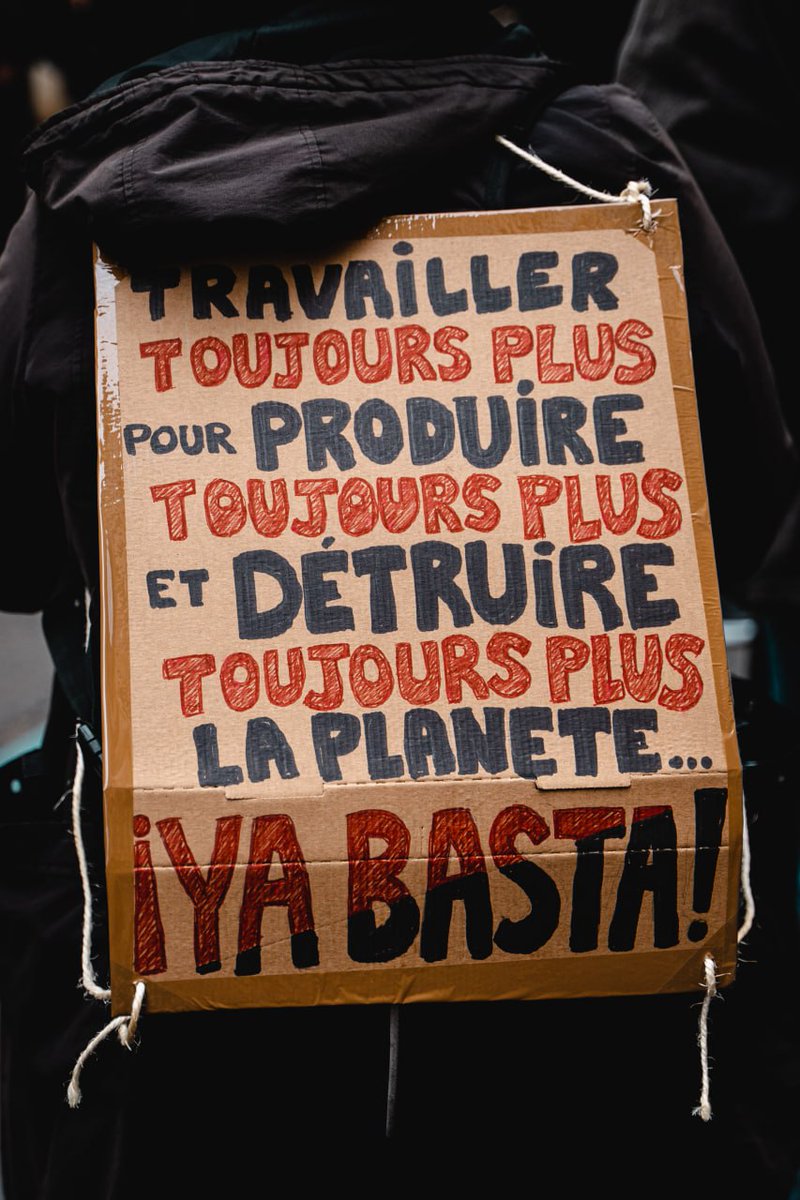 TRAVAILLER
TOUJOURS PLUS
POUR PRODUIRE
TOUJOURS PLUS
ET DÉTRUIRE
TOUJOURS PLUS
LA PLANETE...
¡YA BASTA!